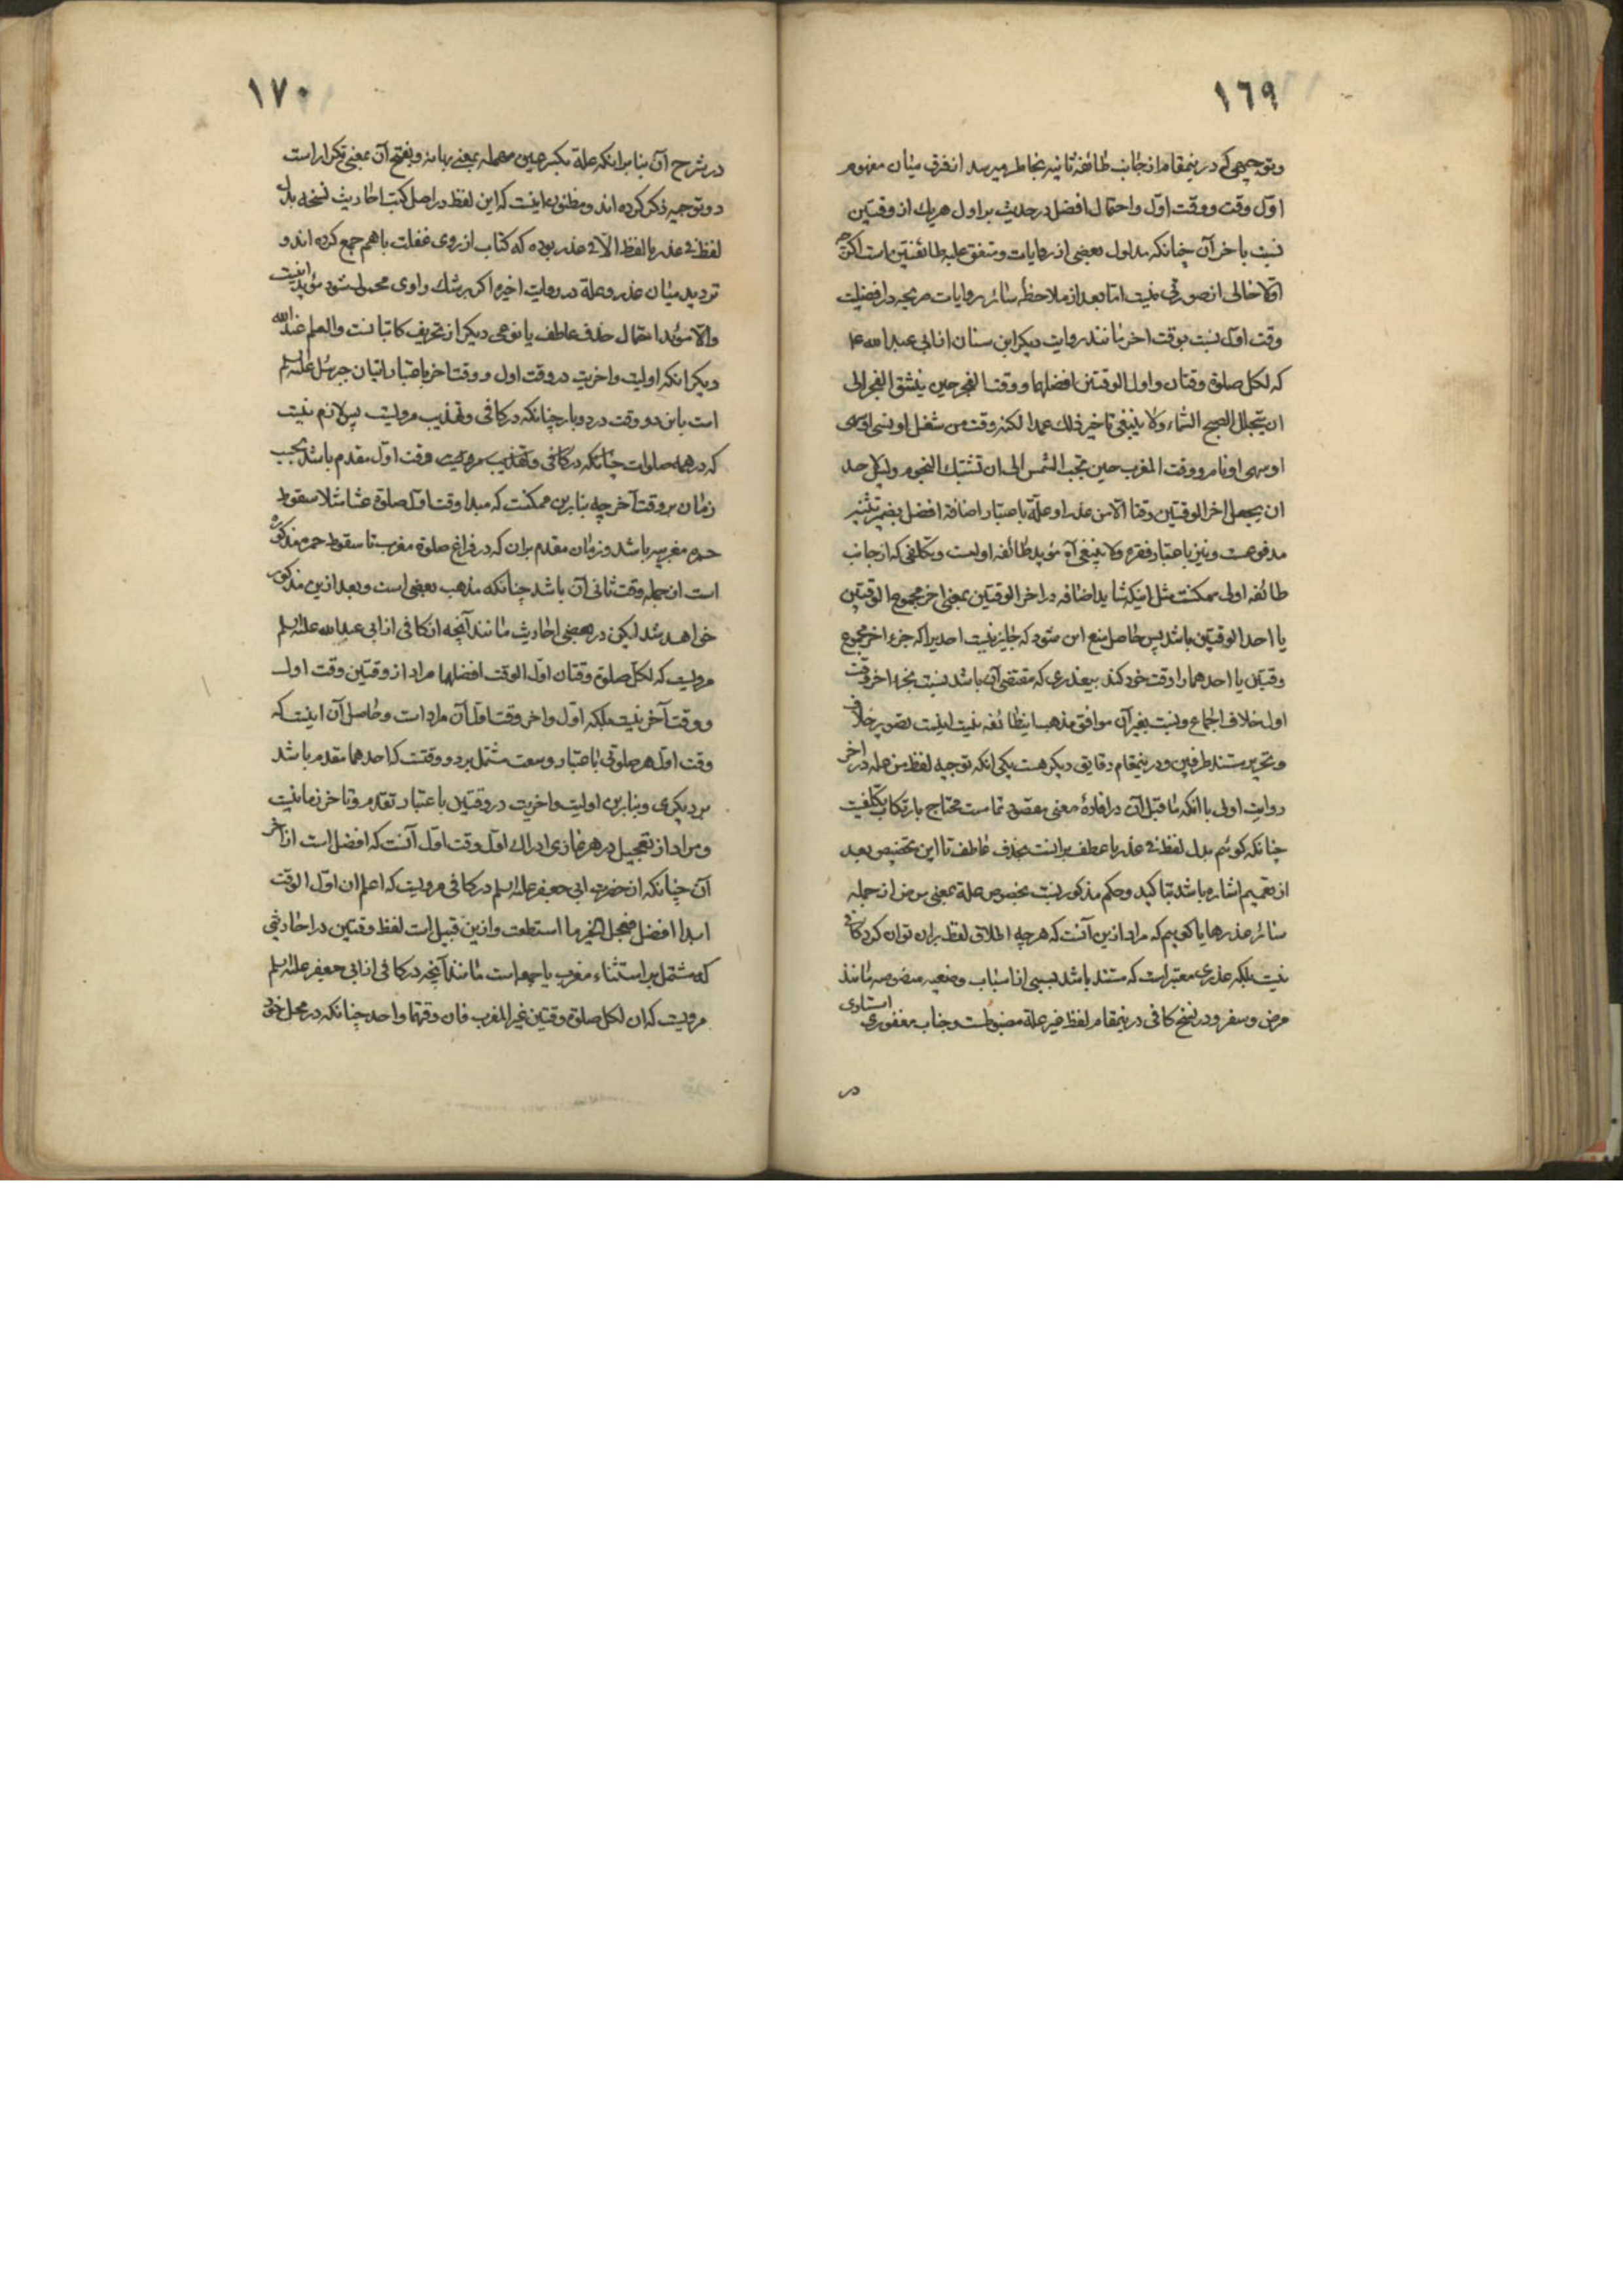 ١٦٩
وتوجیهی که درینمقام از جانب طائفهٔ ثانیه بخاطر میرسد از فرق میان مفهوم
اوّل وقت و وقت اوّل و احتمال افضل در حدیث بر اول هریك از وقتین
نسبت باخر آن چنانکه مدلول بعضی از روایات و متفق علیه طائفتین است اکرچه
اوّلا خالی از صورتی نیست امّا بعد از ملاحظهٔ سائر روایات صریحه در افضلیت
وقت اوّل نسبت بوقت اخر مانند روایت دیکر ابن سنان از ابی عبد الله ع
که لکل صلوة وقتان و اول الوقتین افضلهما و وقت الفجر حین ینشق الفجر الی
ان یتجلل الصبح السّماء ولا ینبغی تاخیر ذلك عمدا لکنه وقت من شغل او نسی
او سهی او نام و وقت المغرب حین تجب الشمس الی ان تشتبك النجوم ولیس لاحد
ان یجعل اخر الوقتین وقتا الّا من عذر او علّة باعتبار اضافهٔ افضل بضمیر تثنیه
مدفوعست و نیز باعتبار فقره ولا ینبغی آه مؤید طائفه اولیست و تکلّفی که از جانب
طائفه اولی ممکنست مثل اینکه شاید اضافه در اخر الوقتین بمعنی اخر مجموع الوقتین
یا احد الوقتین باشد پس حاصل منع این شود که جایز نیست احدیرا که جزء اخر مجموع
وقتین یا احدهما را وقت خود کند بیعذری که مقتضی آن باشد نسبت بجزء اخر وقت
اول خلاف اجماع و نسبت بغیر آن موافق مذهب اینطائفه نیست اینست تصویر خلاف
و تحریر مستند طرفین و درینمقام دقایق دیکر هست یکی انکه توجیه لفظ من علة در اخر
روایت اولی با انکه ما قبل آن در افادهٔ معنی مقصود تمامست محتاج بارتکاب تکلّفیست
چنانکه کوئیم بدل لفظ فی عذر یا عطف بر انست بحذف عاطف تا این تخصیص بعد
از تعمیم اشاره باشد بتاکید و حکم مذکور نسبت بخصوص علة بمعنی مرض از جمله
سائر عذرها یا کوییم که مراد ازین آنست که هرچه اطلاق لفظ بران توان کرد کافی
نیست بلکه عذری معتبر است که مستند باشد بسببی از اسباب وضعیه منصوصه مانند
مرض و سفر و در نسخ کافی درینمقام لفظ غیر علة مضبوطست و جناب مغفوری استادی
در
١٧٠
در شرح آن بنابر اینکه علة بکسر عین مهمله بمعنی بهانه و بفتح آن بمعنی تکرار است
دو توجیه ذکر کرده اند و مظنون ما اینست که این لفظ در اصل کتب احادیث نسخه بدل
لفظ فی عذر یا لفظ الّا فی عذر بوده که کتّاب از روی غفلت با هم جمع کرده اند و
تردید میان عذر و علة در روایت اخیره اکر بر شك راوی محمول شود مؤید اینست
والّا مؤید احتمال حذف عاطف یا نوعی دیکر از تحریف کاتبانست والعلم عند الله
دیکر انکه اولیت و اخریت در وقت اول و وقت اخر باعتبار اتیان جبرئیل علیه السلم
است باین دو وقت در دو بار چنانکه در کافی و تهذیب مرویست پس لازم نیست
که در همه صلوات چنانکه در کافی و تهذیب مرویست وقت اوّل مقدم باشد بحسب
زمان بر وقت آخر چه بنابرین ممکنست که مبدا وقت اوّل صلوة عشا مثلا سقوط
حمره مغربیه باشد و زمان مقدم بران که در فراغ صلوة مغرب تا سقوط حمره مذکوره
است از جمله وقت ثانی آن باشد چنانکه مذهب بعضی است و بعد ازین مذکور
خواهد شد لیکن در بعضی احادیث مانند آنچه از کافی از ابی عبد الله علیه السلم
مرویست که لکل صلوة وقتان اوّل الوقت افضلهما مراد از وقتین وقت اول
و وقت آخر نیست بلکه اوّل و اخر وقت اوّل آن مراد است و حاصل آن اینست که
وقت اوّل هر صلوتی باعتبار وسعت مشتمل بر دو وقتست که احدهما مقدم باشد
بر دیکری و بنابرین اولیت و اخریت در وقتین باعتبار تقدم و تاخر زمانیست
و مراد از تعجیل در هر نمازی ادراك اوّل وقت اوّل آنست که افضل است از اخر
آن چنانکه از حضرت ابی جعفر علیه السلم در کافی مرویست که اعلم ان اوّل الوقت
ابدا افضل فعجل الخیر ما استطعت و ازین قبیل است لفظ وقتین در احادیثی
که مشتمل بر استثناء مغرب یا جمعه است مانند آنچه در کافی از ابی جعفر علیه السلم
مرویست که ان لکل صلوة وقتین غیر المغرب فان وقتها واحد چنانکه در محل خود